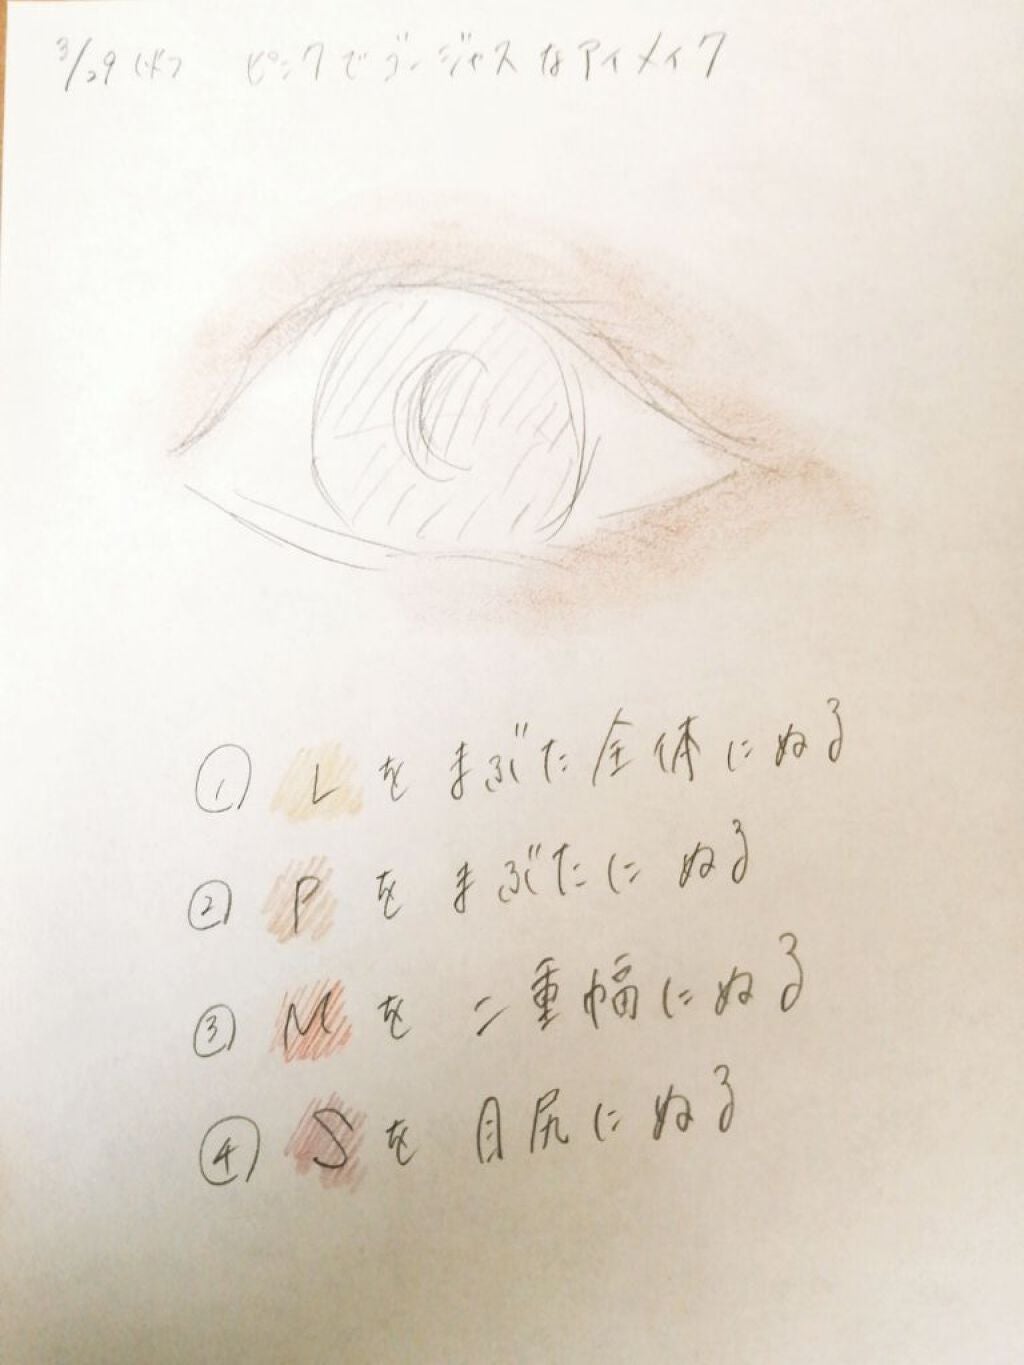 3/29(火) ピンクでゴージャスなアイメイク
① Lをまぶた全体にぬる
② Pをまぶたにぬる
③ Mを二重幅にぬる
④ Sを目尻にぬる